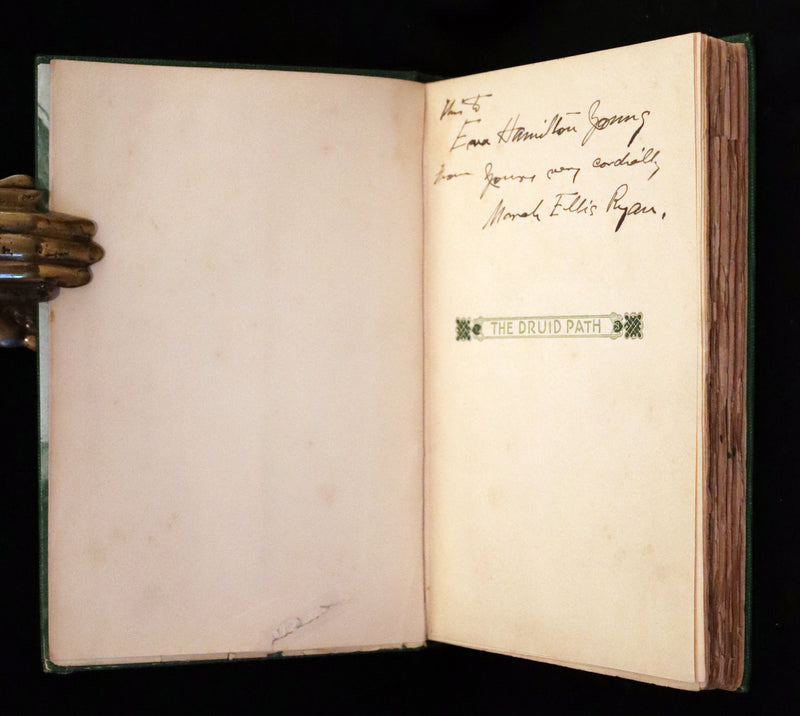 this to
Ema Hamilton Young
from yours very cordially
Marah Ellis Ryan.
THE DRUID PATH